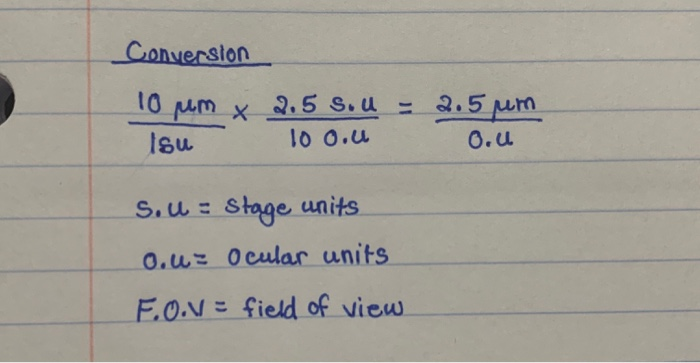 Conversion
10 µm / 1su × 2.5 s.u / 10 o.u = 2.5 µm / o.u
s.u = stage units
o.u = ocular units
F.O.V = field of view